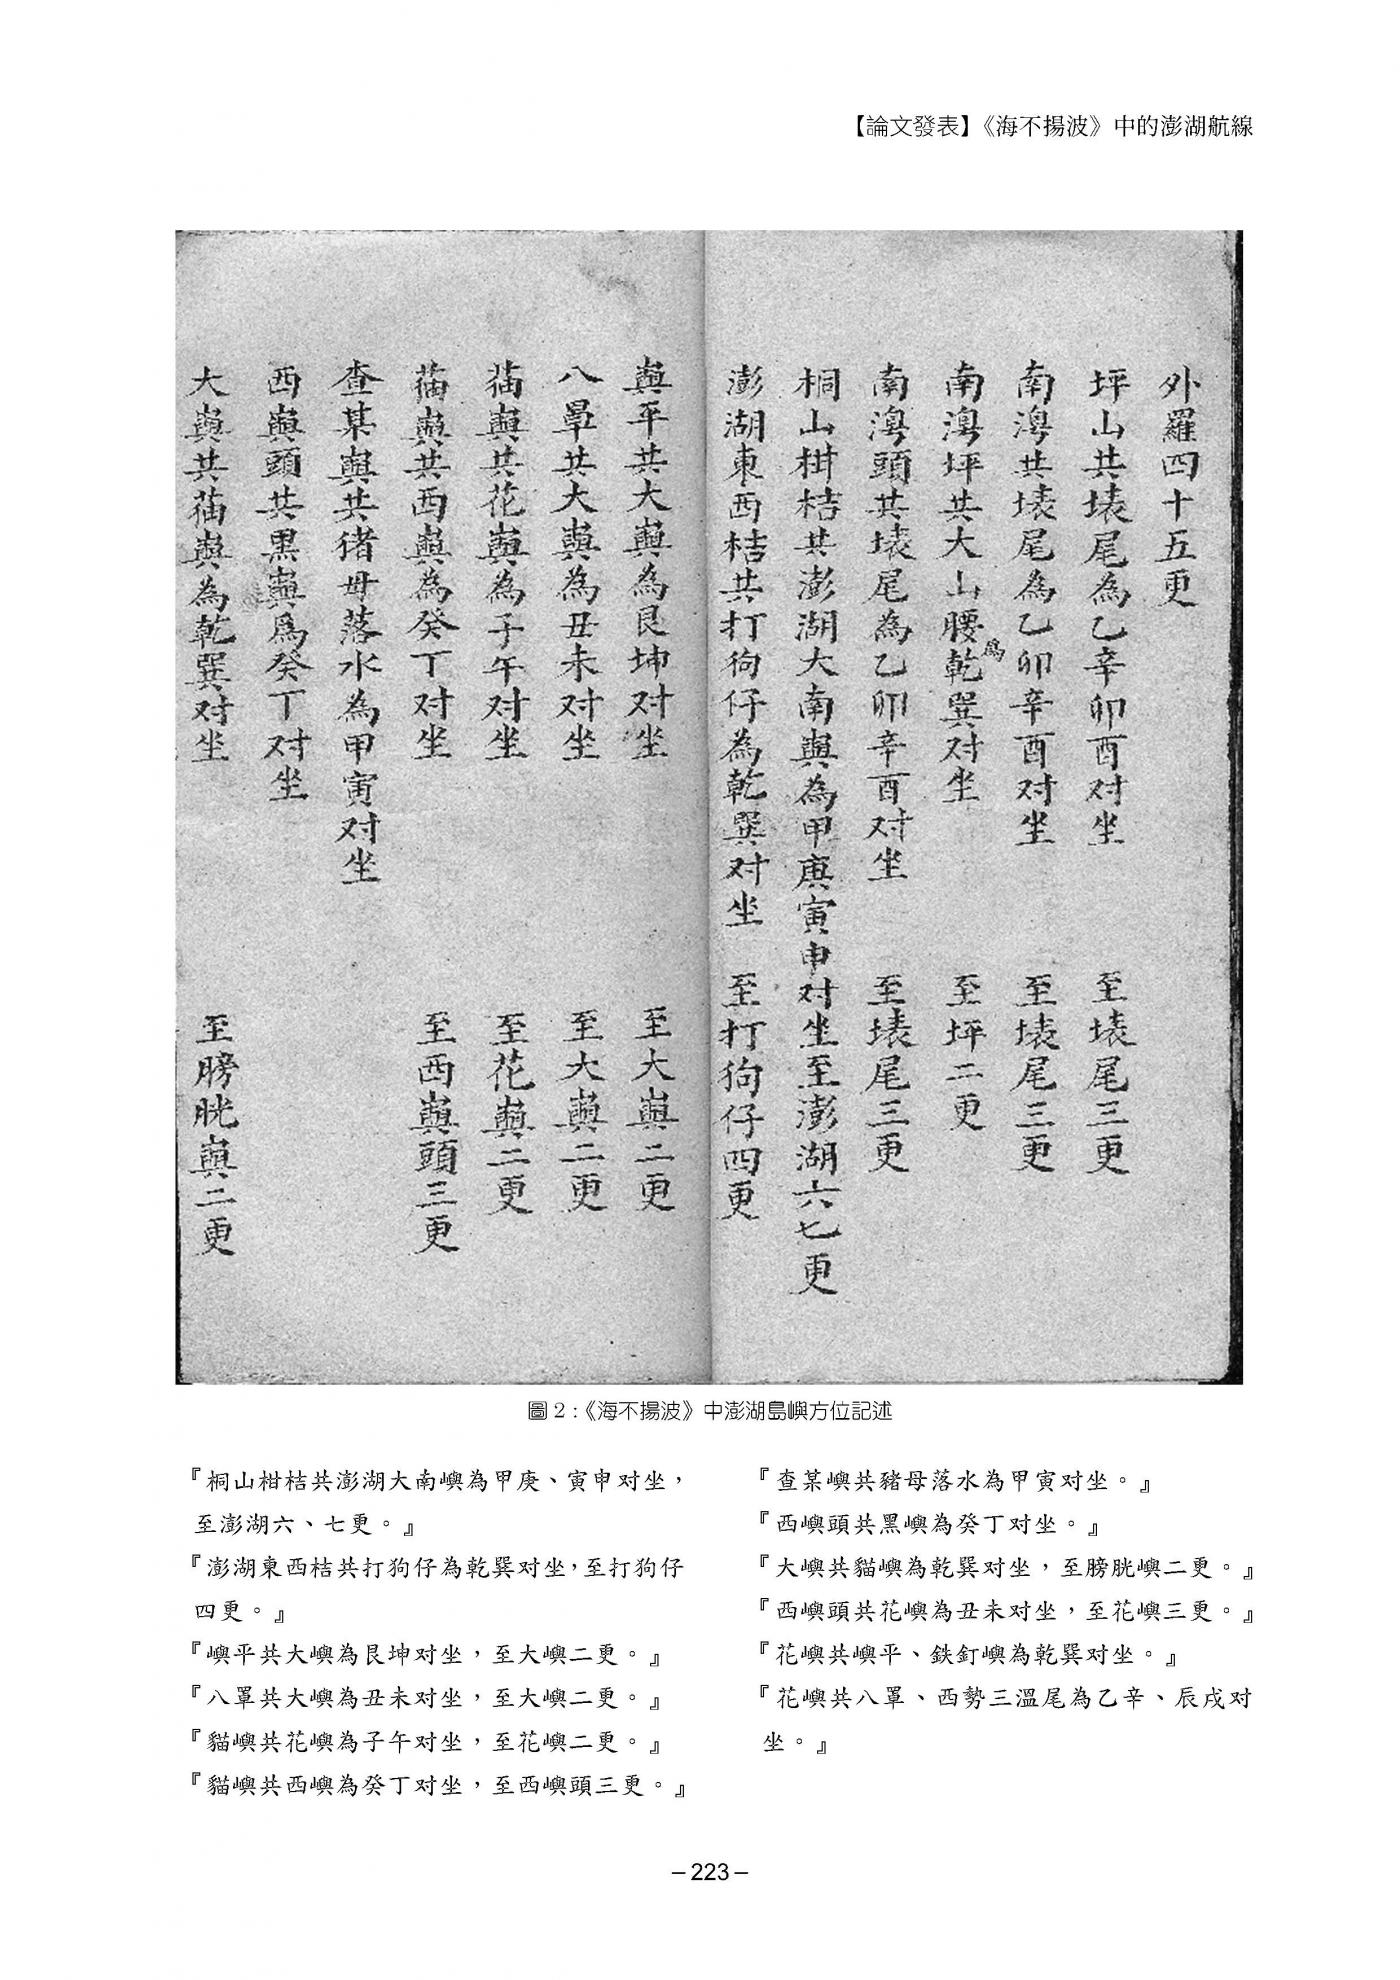 【論文發表】《海不揚波》中的澎湖航線
外羅四十五更
坪山共㙘尾為乙辛卯酉对坐　至㙘尾三更
南澳共㙘尾為乙卯辛酉对坐　至㙘尾三更
南澳坪共大山腰為乾巽对坐　至坪二更
南澳頭共㙘尾為乙卯辛酉对坐　至㙘尾三更
桐山柑桔共澎湖大南嶼為甲庚寅申对坐至澎湖六七更
澎湖東西桔共打狗仔為乾巽对坐　至打狗仔四更
嶼平共大嶼為艮坤对坐　至大嶼二更
八罩共大嶼為丑未对坐　至大嶼二更
猫嶼共花嶼為子午对坐　至花嶼二更
猫嶼共西嶼為癸丁对坐　至西嶼頭三更
查某嶼共猪母落水為甲寅对坐
西嶼頭共黑嶼爲癸丁对坐
大嶼共猫嶼為乾巽对坐　至膀胱嶼二更
圖2:《海不揚波》中澎湖島嶼方位記述
『桐山柑桔共澎湖大南嶼為甲庚、寅申对坐，
至澎湖六、七更。』
『澎湖東西桔共打狗仔為乾巽对坐，至打狗仔
四更。』
『嶼平共大嶼為艮坤对坐，至大嶼二更。』
『八罩共大嶼為丑未对坐，至大嶼二更。』
『貓嶼共花嶼為子午对坐，至花嶼二更。』
『貓嶼共西嶼為癸丁对坐，至西嶼頭三更。』
『查某嶼共豬母落水為甲寅对坐。』
『西嶼頭共黑嶼為癸丁对坐。』
『大嶼共貓嶼為乾巽对坐，至膀胱嶼二更。』
『西嶼頭共花嶼為丑未对坐，至花嶼三更。』
『花嶼共嶼平、鉄釘嶼為乾巽对坐。』
『花嶼共八罩、西勢三溫尾為乙辛、辰戌对
坐。』
–223–